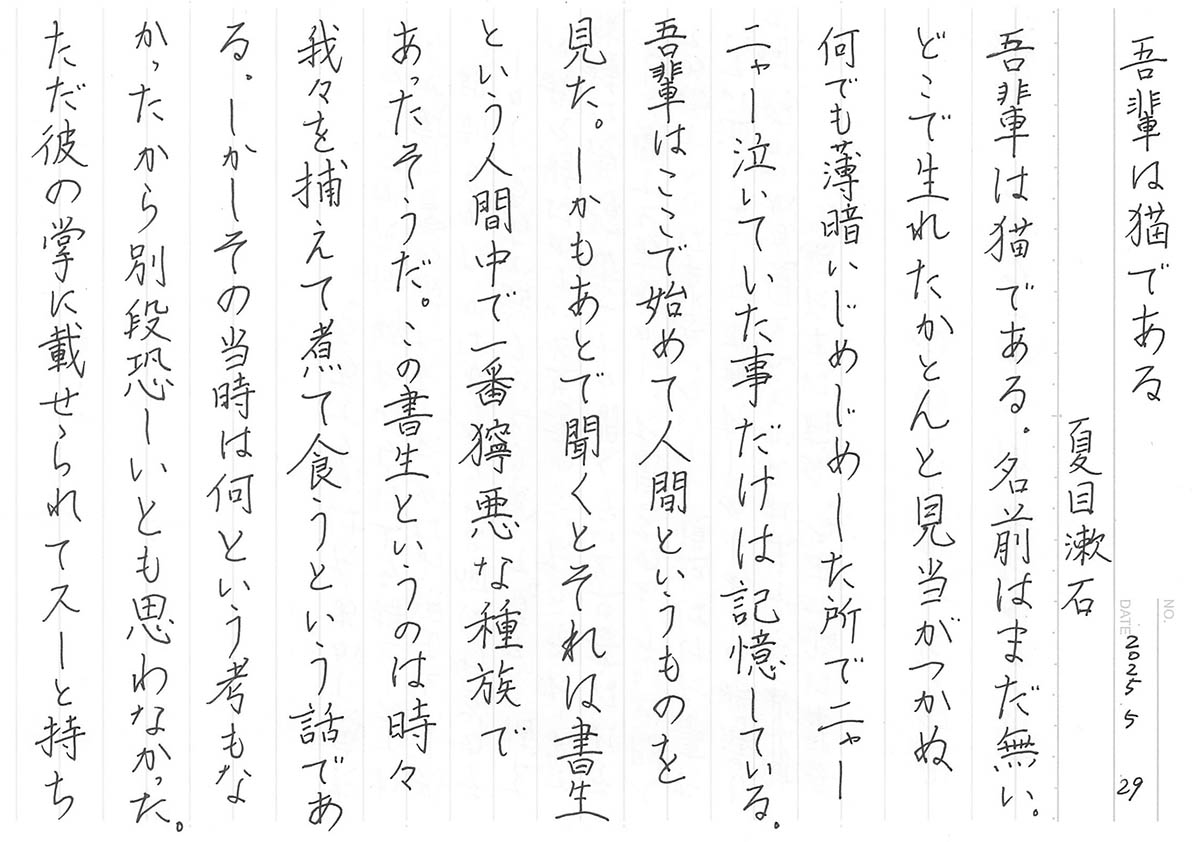 NO.
DATE 2025 5 29
吾輩は猫である
夏目漱石
吾輩は猫である。名前はまだ無い。
どこで生れたかとんと見当がつかぬ
何でも薄暗いじめじめした所でニャー
ニャー泣いていた事だけは記憶している。
吾輩はここで始めて人間というものを
見た。しかもあとで聞くとそれは書生
という人間中で一番獰悪な種族で
あったそうだ。この書生というのは時々
我々を捕えて煮て食うという話であ
る。しかしその当時は何という考もな
かったから別段恐しいとも思わなかった。
ただ彼の掌に載せられてスーと持ち